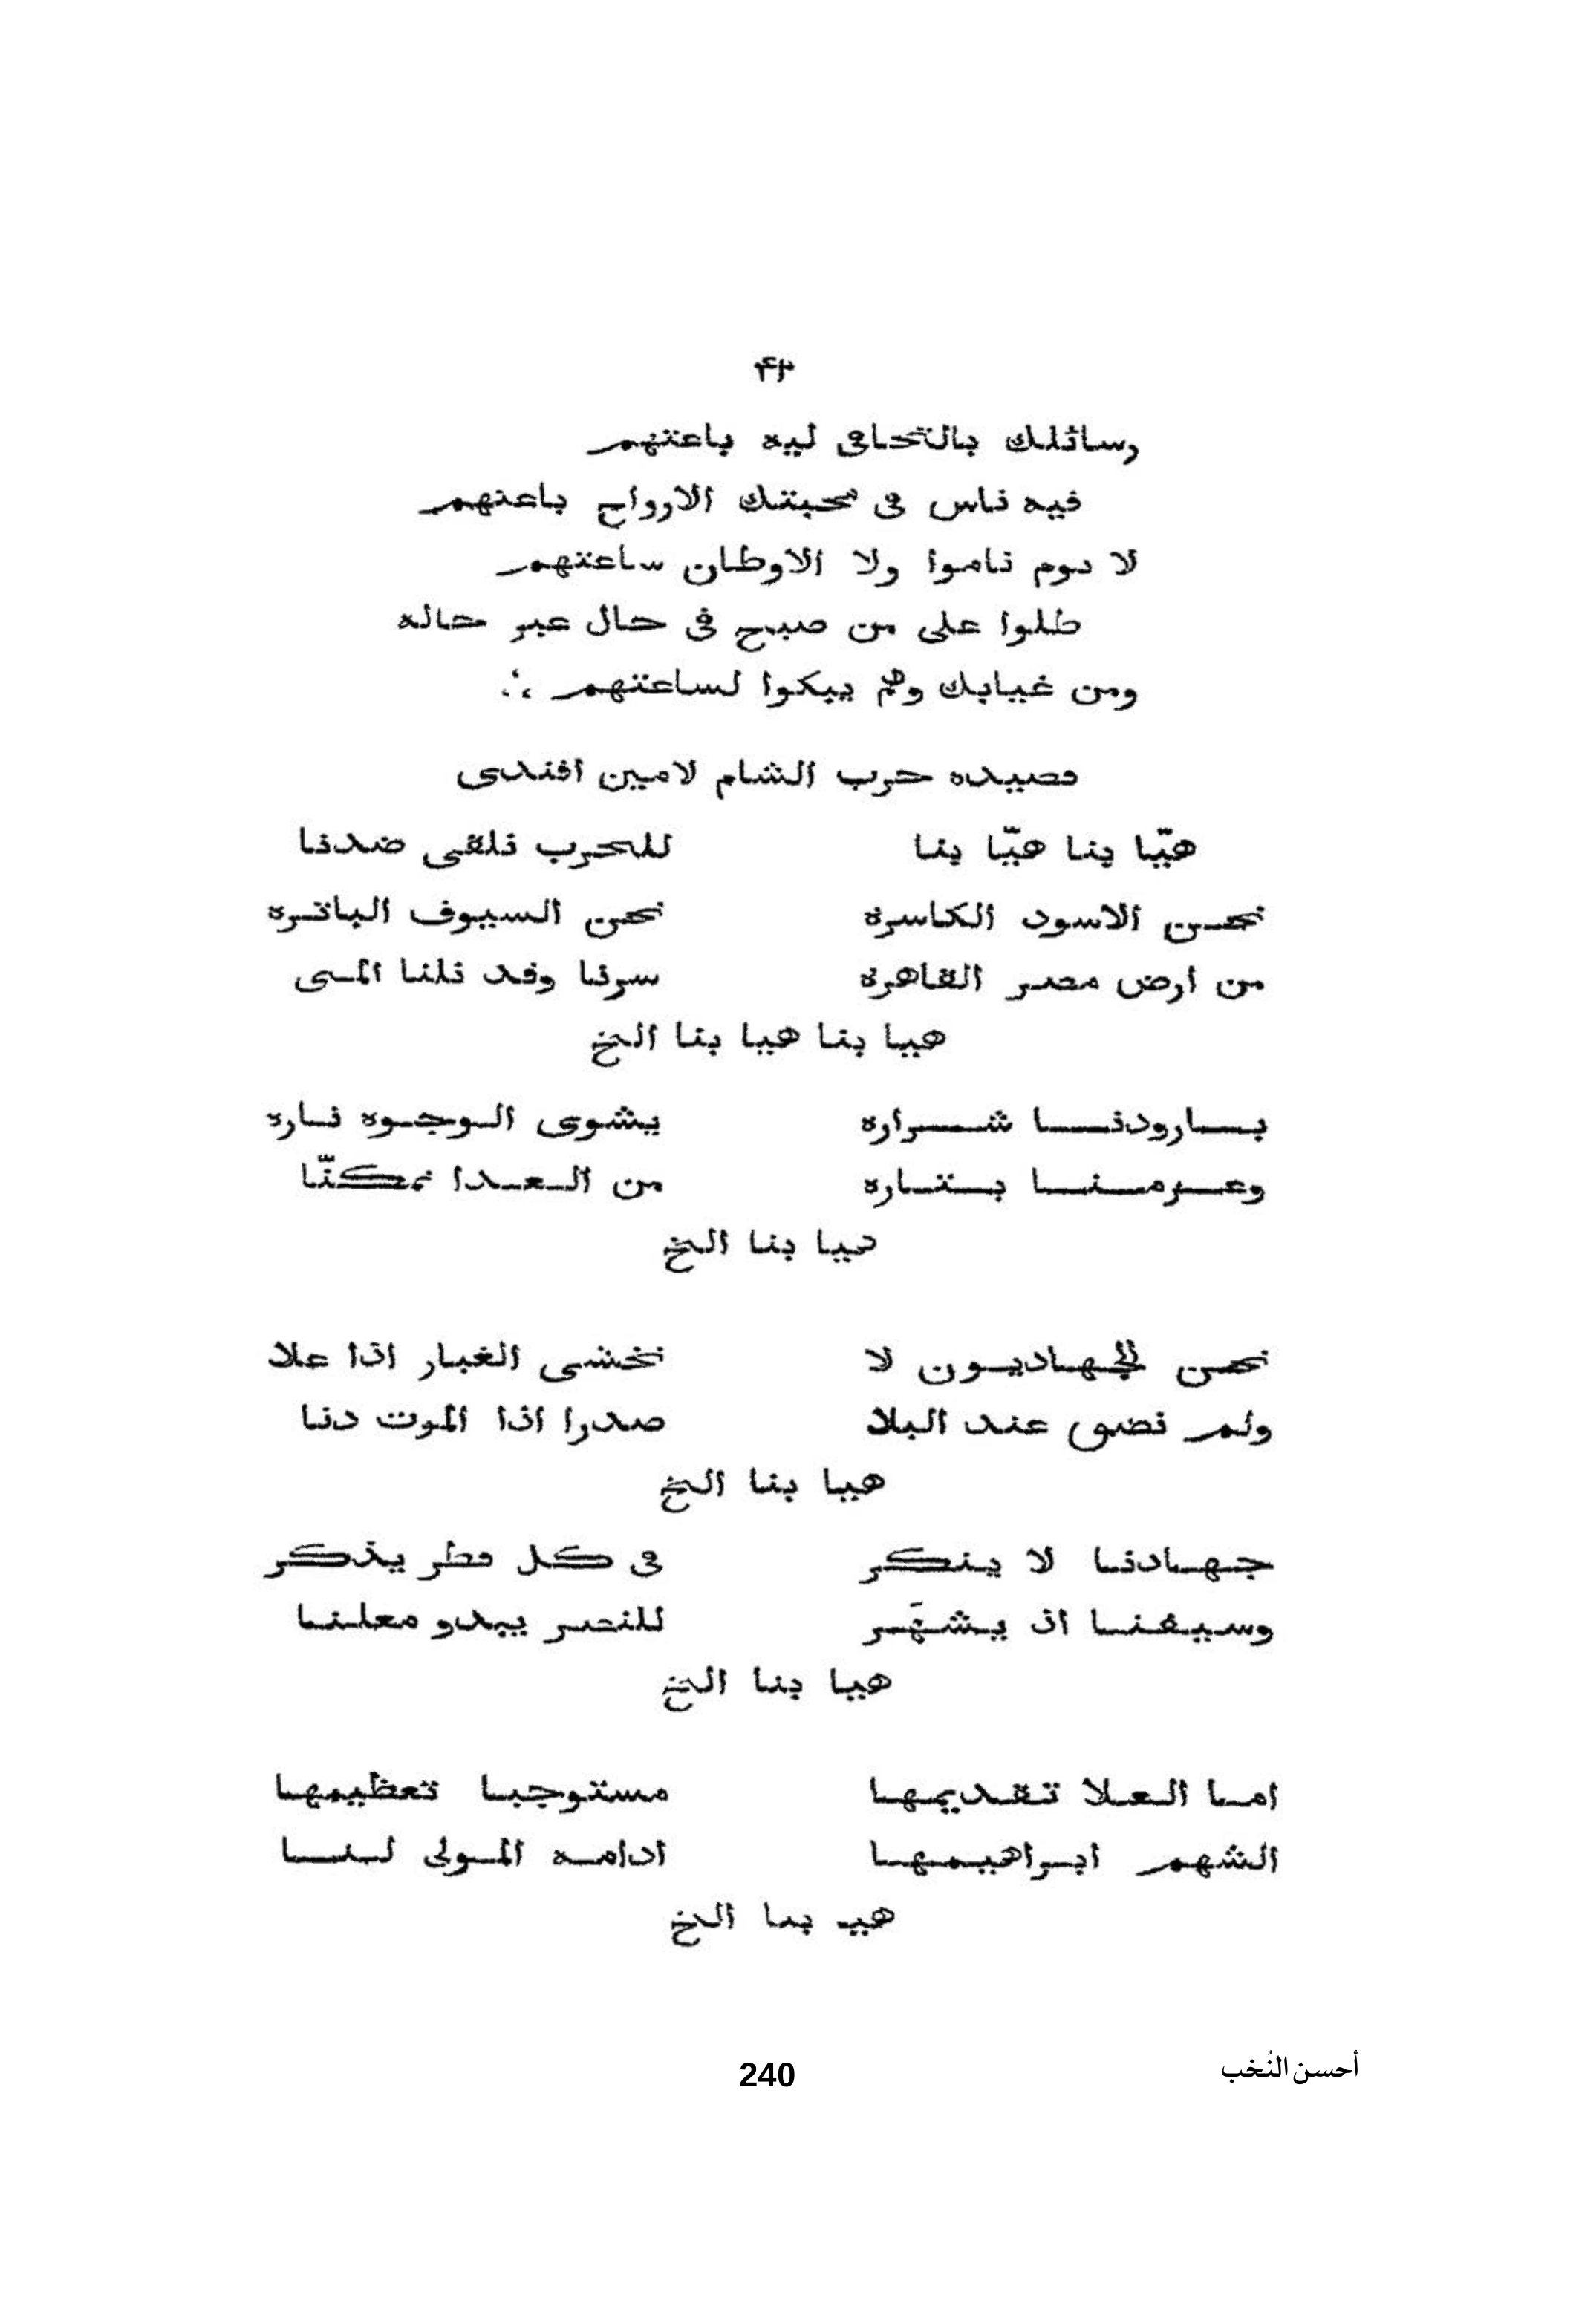 ٤٢
رسائلك بالتجافى ليه باعتهم
فيه ناس فى محبتك الارواح باعتهم
لا نوم ناموا ولا الاوطان ساعتهم
طلوا على من صبح فى حال عبر حاله
ومن غيابك وهم يبكوا لساعتهم
قصيده حرب الشام لامين افندى
هيّا بنا هيّا بنا للحرب نلقى ضدنا
نحن الاسود الكاسرة نحن السيوف الباتره
من ارض مصر القاهرة سرنا وقد نلنا المنى
هيا بنا هيا بنا الخ
بارودنا شراره يشوى الوجوه ناره
وعزمنا بتاره من العدا تمكنّا
هيا بنا الخ
نحن الجهاديون لا نخشى الغبار اذا علا
ولم نضق عند البلا صدرا اذا الموت دنا
هيا بنا الخ
جهادنا لا ينكر فى كل قطر يذكر
وسيفنا اذ يشهَر للنصر يبدو معلنا
هيا بنا الخ
اما العلا تقديمها مستوجبا تعظيمها
الشهم ابراهيمها ادامه المولى لنا
هيا بنا الخ
أحسن النُخب
240